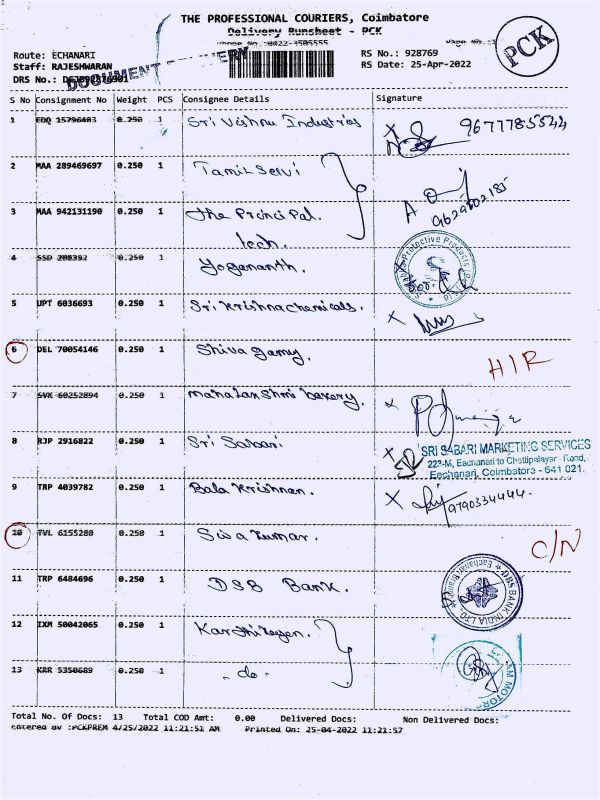 THE PROFESSIONAL COURIERS, Coimbatore
Delivery Runsheet - PCK
Phone No :0422-4505555
PCK
Route: ECHANARI
RS No.: 928769
Staff: RAJESHWARAN
RS Date: 25-Apr-2022
DRS No.:
DOCUMENT DELIVERY
S No Consignment No Weight PCS Consignee Details Signature
1 EDQ 15796483 0.250 1 Sri Vishnu Industries 9677785544
2 MAA 289469697 0.250 1 Tamil Selvi
3 MAA 942131190 0.250 1 The Principal.
Tech.
9629802185
4 SSD 208392 0.250 1 Yogananth.
Protective Products
5 UPT 6036693 0.250 1 Sri Krishna Chemicals.
6 DEL 70054146 0.250 1 Shiva gamy. HIR
7 SVK 60252894 0.250 1 mahalakshmi bakery.
8 RJP 2916822 0.250 1 Sri Sabari
SRI SABARI MARKETING SERVICES
223-M, Eachanari to Chettipalayam Road,
Eachanari, Coimbatore - 641 021.
9 TRP 4039782 0.250 1 Bala Krishnan. 9790334444.
10 TVL 6155280 0.250 1 Siva kumar. C/N
11 TRP 6484696 0.250 1 DSB Bank.
DBS BANK INDIA LTD.
12 IXM 50042065 0.250 1 Karthikeyan.
13 KRR 5350689 0.250 1 - do -
Total No. Of Docs: 13 Total COD Amt: 0.00 Delivered Docs: Non Delivered Docs:
Entered By :PCKPREM 4/25/2022 11:21:51 AM Printed On: 25-04-2022 11:21:57